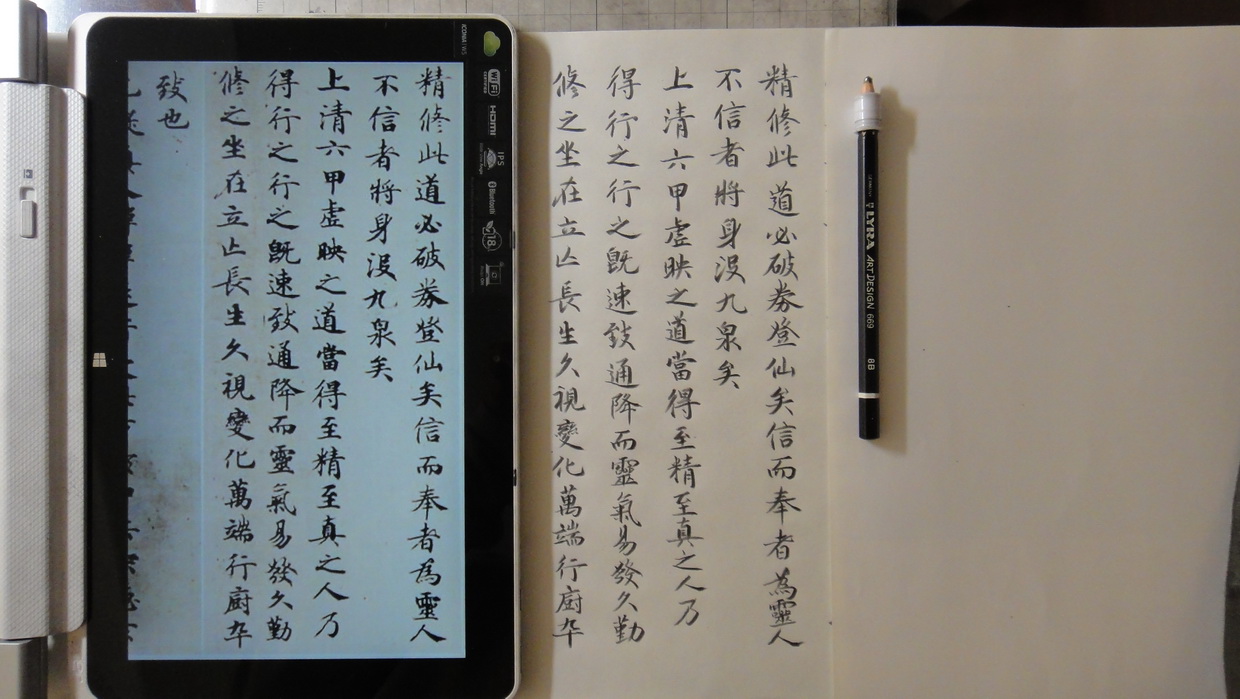 精修此道必破券登仙矣信而奉者為靈人
不信者將身沒九泉矣
上清六甲虛映之道當得至精至真之人乃
得行之行之既速致通降而靈氣易發久勤
修之坐在立亡長生久視變化萬端行廚卒
致也
WiFi
CERTIFIED
HDMI
IPS
Bluetooth
精修此道必破券登仙矣信而奉者為靈人
不信者將身沒九泉矣
上清六甲虛映之道當得至精至真之人乃
得行之行之既速致通降而靈氣易發久勤
修之坐在立亡長生久視變化萬端行廚卒
LYRA ART DESIGN 669 8B